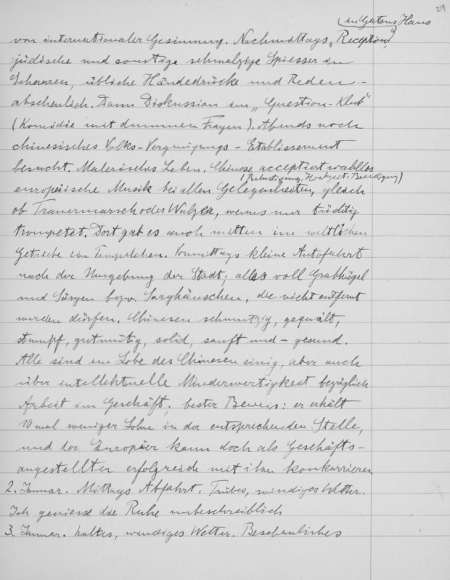 29
in Gatons Haus
von internationaler Gesinnung. Nachmittags "Reception"
jüdische und sonstige schmalzige Spiesser in
Scharen, übliche Händedrücke und Reden -
abscheulich. Dann Diskussion im "Question-Klub"
(Komödie mit dummen Fragen). Abends noch
chinesisches Volks-Vergnügungs-Etablissement
besucht. Malerisches Leben. Chinese acceptiert wahllos
(Beerdigung, Hochzeit
europäische Musik bei allen Gelegenheiten, gleich
ob Trauermarsch oder Walzer, wenns nur tüchtig
trompetet. Dort gab es auch mitten im weltlichen
Getriebe ein Tempelchen. Vormittags kleine Autofahrt
nach der Umgebung der Stadt; alles voll Grabhügel
und Särgen bezw. Sarghäuschen, die nicht entfernt
werden dürfen. Chinesen schmutzig, gequält,
stumpf, gutmütig, solid, sanft und - gesund.
Alle sind im Lobe des Chinesen einig, aber auch
über intellektuelle Minderwertigkeit bezüglich
Arbeit im Geschäft. bester Beweis: er erhält
10 mal weniger Lohn in der entsprechenden Stelle,
und der Europäer kann doch als Geschäfts-
angestellter erfolgreich mit ihm konkurrieren
2. Januar. Mittags Abfahrt. Trübes, windiges Wetter.
Ich geniesse die Ruhe unbeschreiblich
3. Januar. kaltes, windiges Wetter. Beschauliches